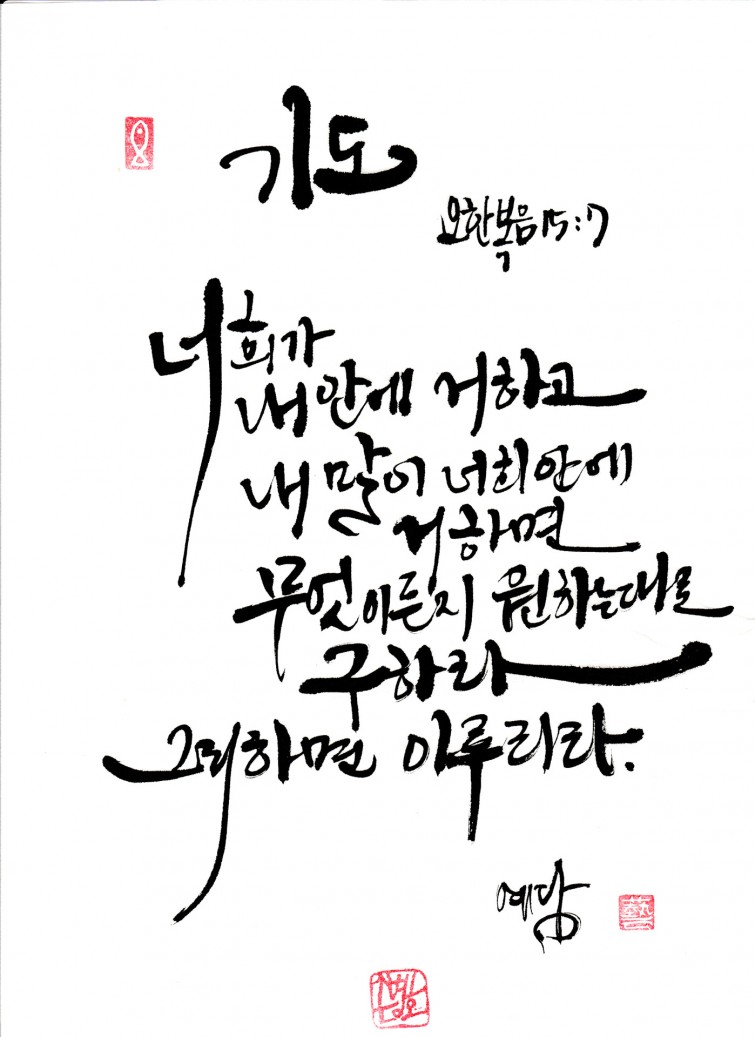 기도
요한복음 15:7
너희가
내 안에 거하고
내 말이 너희 안에
거하면
무엇이든지 원하는대로
구하라
그리하면 이루리라.
예담
藝